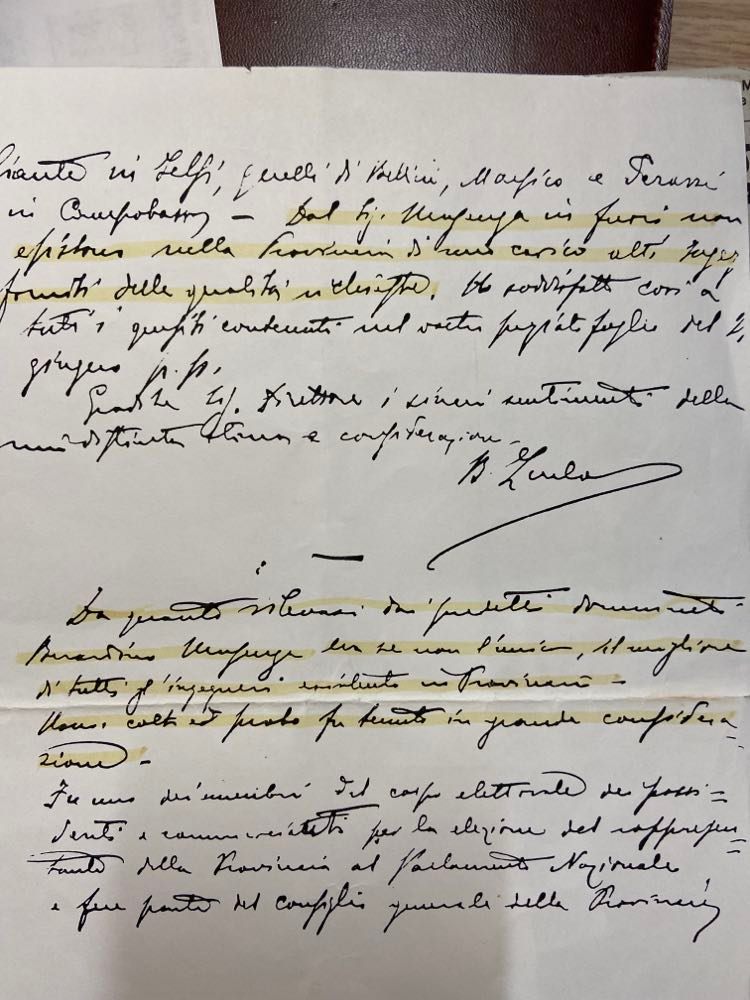 in Jelsi, quelli di Bellini, e
in Campobasso — Dal Sig. Musenga in fuori non
esistono nella Provincia di mio carico altri
forniti della qualità richieste. Ho soddisfatti così a
tutti i quesiti contenuti nel vostro pregiato foglio del 2
giugno p. p.
Gradite Sig. Direttore i sinceri sentimenti della
mia distinta stima e considerazione —
B. Zurlo
—
Da quanto rilevasi dai predetti documenti
Berardino Musenga era se non l'unico, il migliore
di tutti gl'ingegneri esistenti in Provincia —
Uomo colto ed probo fu tenuto in grande considera=
zione —
Fu uno dei membri del corpo elettorale dei possi=
denti e commercianti per la elezione del rappresen=
tante della Provincia al Parlamento Nazionale
e fece parte del consiglio generale della Provincia,